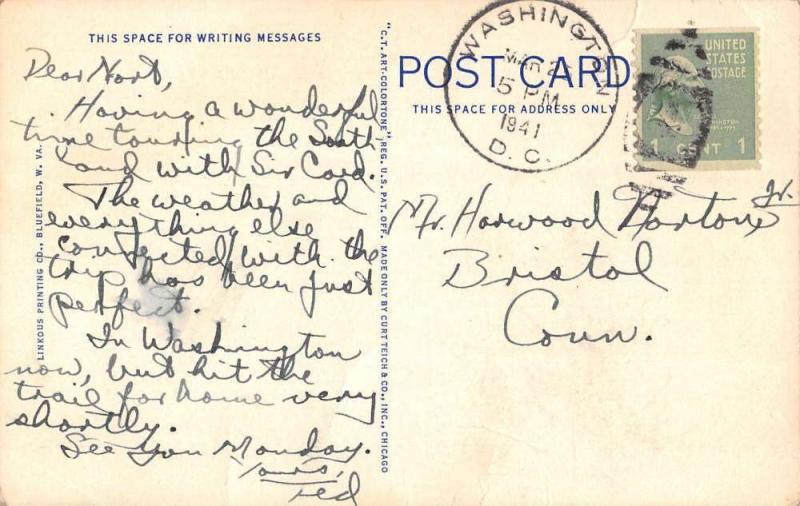 THIS SPACE FOR WRITING MESSAGES
Dear Nort,
Having a wonderful
time touring the South
land with Sir Card.
The weather and
everything else
connected with the
trip has been just
perfect.
In Washington
now, but hit the
trail for home very
shortly.
See you Monday.
Yours,
Ted
LINKOUS PRINTING CO., BLUEFIELD, W. VA.
"C.T. ART-COLORTONE" REG. U.S. PAT. OFF. MADE ONLY BY CURT TEICH & CO., INC., CHICAGO
POST CARD
THIS SPACE FOR ADDRESS ONLY
WASHINGTON
MAR
5 PM
1941
D. C.
UNITED
STATES
POSTAGE
1 CENT 1
Mr. Harwood Norton Jr.
Bristol
Conn.